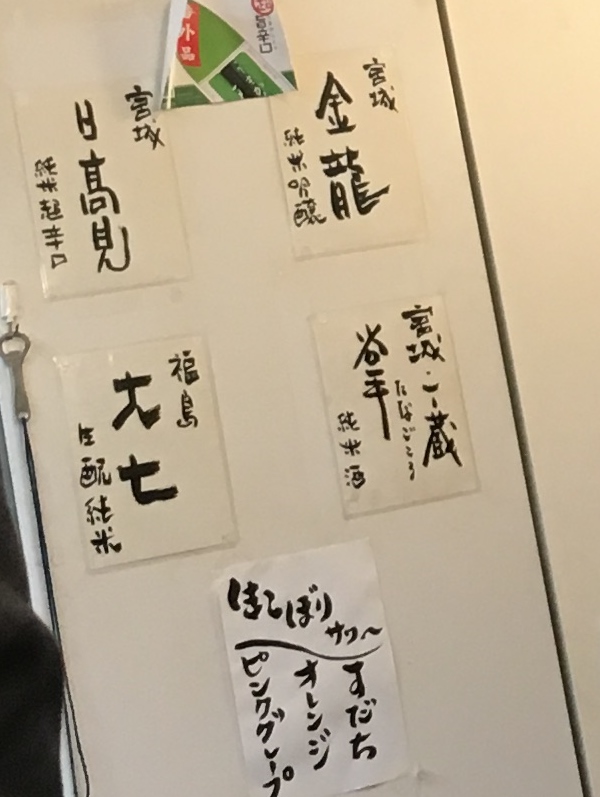 旨辛口
外品
宮城
日髙見
純米超辛口
宮城
金龍
純米吟醸
福島
大七
生酛純米
宮城 一ノ蔵
たなごころ
掌
純米酒
しぼり
サワー
すだち
オレンジ
ピンクグレープ